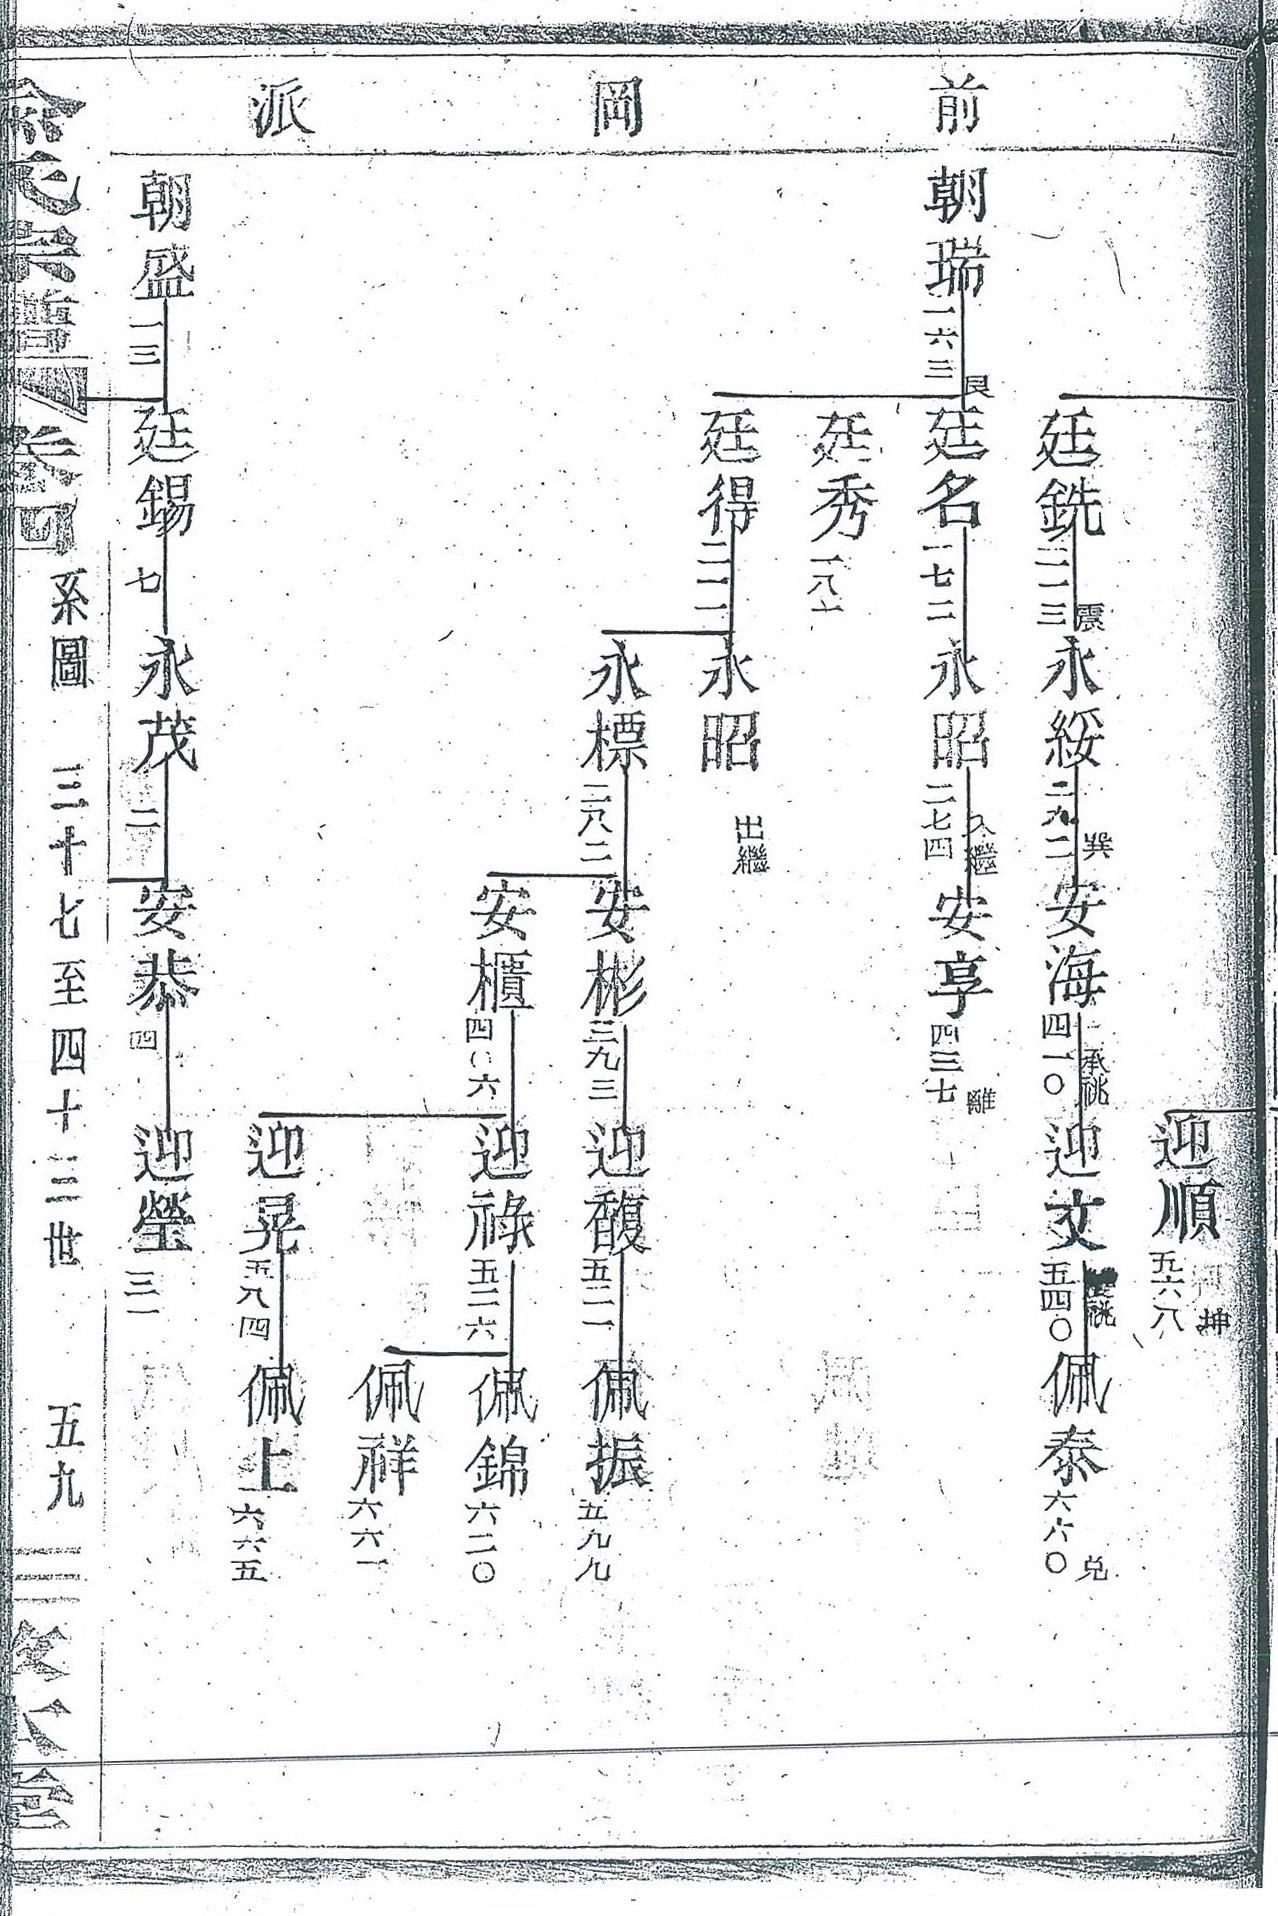 前岡派
迎順 五六八 坤
廷銑 二一三 震
永綏 二九二 巽
安海 四一〇 承祧
迎文 五四〇 祧
佩泰 六六〇 兌
朝瑞 一六三 艮
廷名 一七二
永昭 二七四 入繼
安享 四三七 離
廷秀 一八
廷得 二一一
永昭 出繼
永標 二八二
安彬 三九三
迎馥 五二一
佩振 五九九
安櫃 四〇六
迎祿 五二六
佩錦 六二〇
佩祥 六六一
迎晃 五八四
佩上 六六五
朝盛 一三
廷錫 七
永茂 二
安恭 四
迎瑩 三一
氏宗譜 卷四 系圖 三十七至四十三世 五九 堂